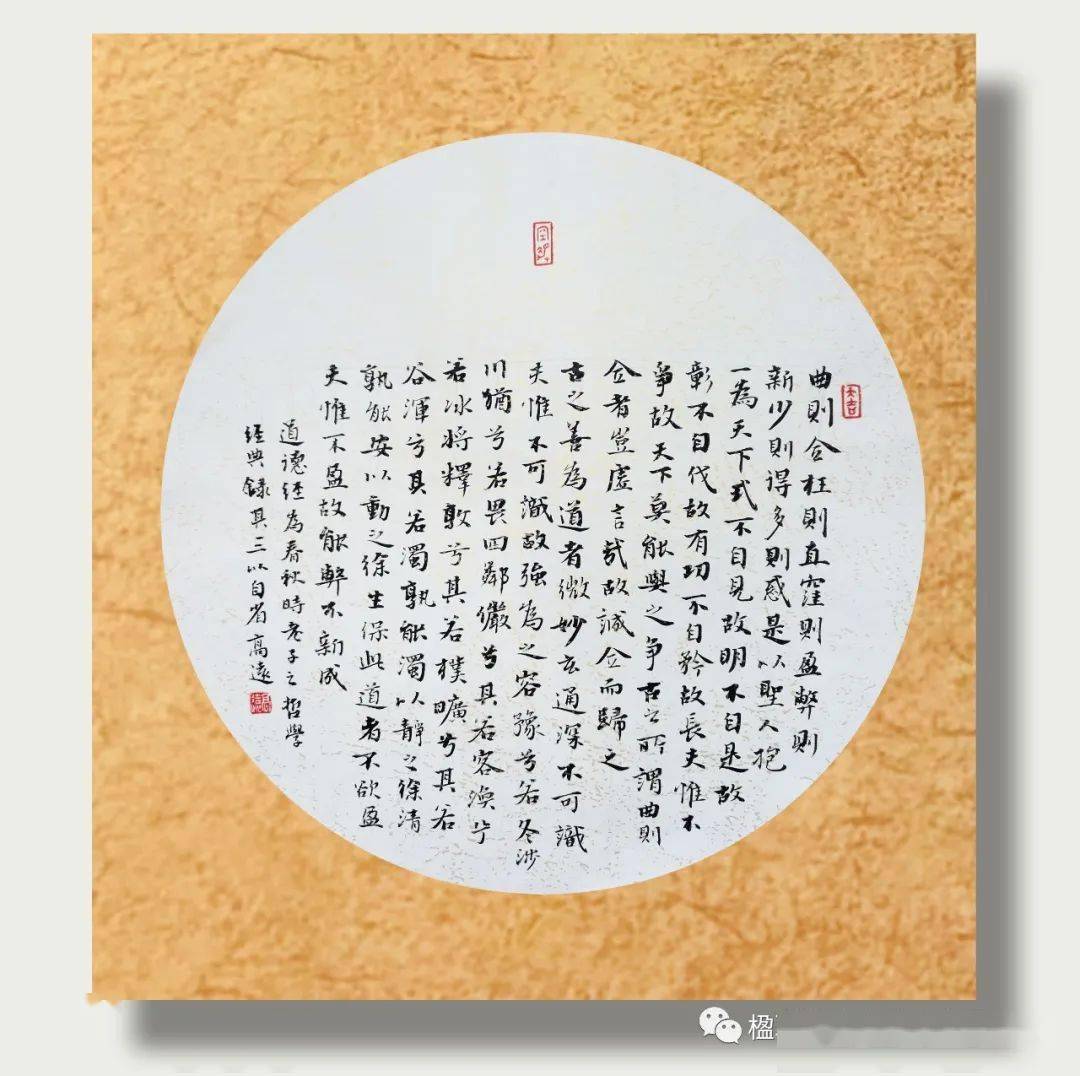 曲則全枉則直窪則盈弊則
新少則得多則惑是以聖人抱
一為天下式不自見故明不自是故
彰不自伐故有功不自矜故長夫惟不
爭故天下莫能與之爭古之所謂曲則
全者豈虛言哉故誠全而歸之
古之善為道者微妙玄通深不可識
夫惟不可識故強為之容豫兮若冬涉
川猶兮若畏四鄰儼兮其若客渙兮
若冰將釋敦兮其若樸曠兮其若
谷渾兮其若濁孰能濁以靜之徐清
孰能安以動之徐生保此道者不欲盈
夫惟不盈故能弊不新成
道德經為春秋時老子之哲學
經典錄其三以自省高遠
大吉
楹